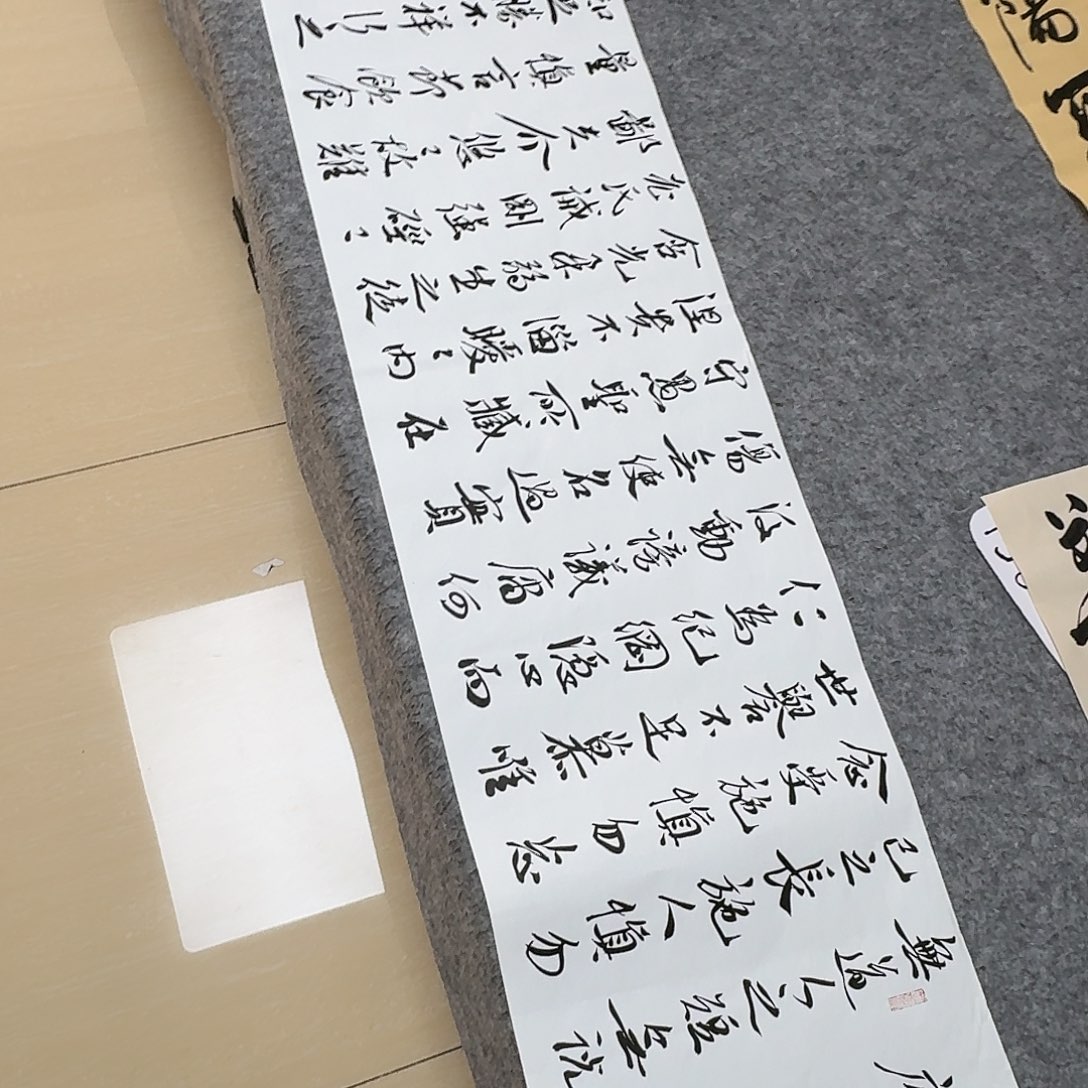 無道人之短無説
己之長施人慎勿
念受施慎勿忘
世譽不足慕唯
仁為紀綱隱心而
後動謗議庸何
傷無使名過實
守愚聖所臧在
涅貴不淄曖〻内
含光柔弱生之徒
老氏誡剛強硜〻
鄙夫介悠〻故難
量慎言節飲食
足勝不祥行之